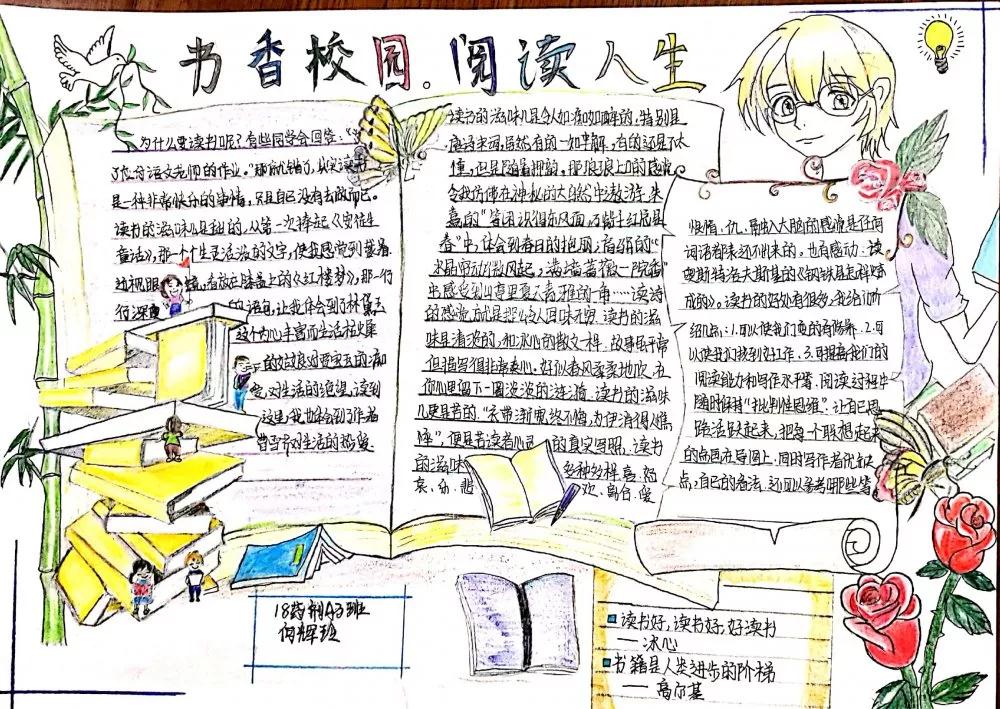 书香校园。阅读人生
为什么要读书呢？有些同学会回答："为
了应付语文老师的作业。"那就错了，其实读书
是一种非常快乐的事情，只是自己没有去做而已。
读书的滋味儿是甜的，从第一次捧起《穷
活》，那一个个生灵活泼的文字，使我感觉到
近视眼 放在膝盖上的《红楼梦》，那一行
行深 的语句，让我体会到了林黛玉
这个内心丰富而生活在史
的姑娘对贾宝玉的
对生活的绝望，读到
这里，我也体会到了作者
曹雪芹对生活的
读书的滋味儿是令人如痴如醉的，特别是
唐诗宋词，虽然有的一知半解，有的还是不太
懂，但是随着押韵，那浪浪上口的感觉
令我仿佛在神秘的大自然中遨游，朱
熹的"等闲识得东风面，万紫千红总是
春"中，体会到春日的艳丽；高骈的"
水晶帘动微风起，满架蔷薇一院香"
中感受到山亭里夏天清雅的一角……读诗
的感觉尤其是那么令人回味无穷。读书的滋
味是清淡的，和冰心的散文一样，故事虽平常
但描写得非常柔心，好似春风柔柔地吹，在
你心里留下一圈淡淡的涟漪。读书的滋味
儿更是苦的，"衣带渐宽终不悔，为伊消得人憔
悴"，便是苦读者心灵的真实写照。读书
的滋味 多种多样，喜、怒、
哀、乐、悲 欢、离、合、爱
恨、情、仇。最出入大脑的感觉是任何
词语都表达不出来的，也有感动。读
奥斯特洛夫斯基的《钢铁是怎样炼
成的》，读书的好处有很多，我给们
绍几点：1.可以使我们真的有修养。2.可
以使我们找到好工作。3.可提高我们的
阅读能力和写作水平等。阅读过程中
随时保持"批判性思维"，让自己思
路活跃起来，把每个联想起来
的点画在导图上，同时写作者优缺
点，自己的看法，还可以参考哪些等
18药剂43班
何辉班
读书好，读书好，好读书
——冰心
书籍是人类进步的阶梯
——高尔基